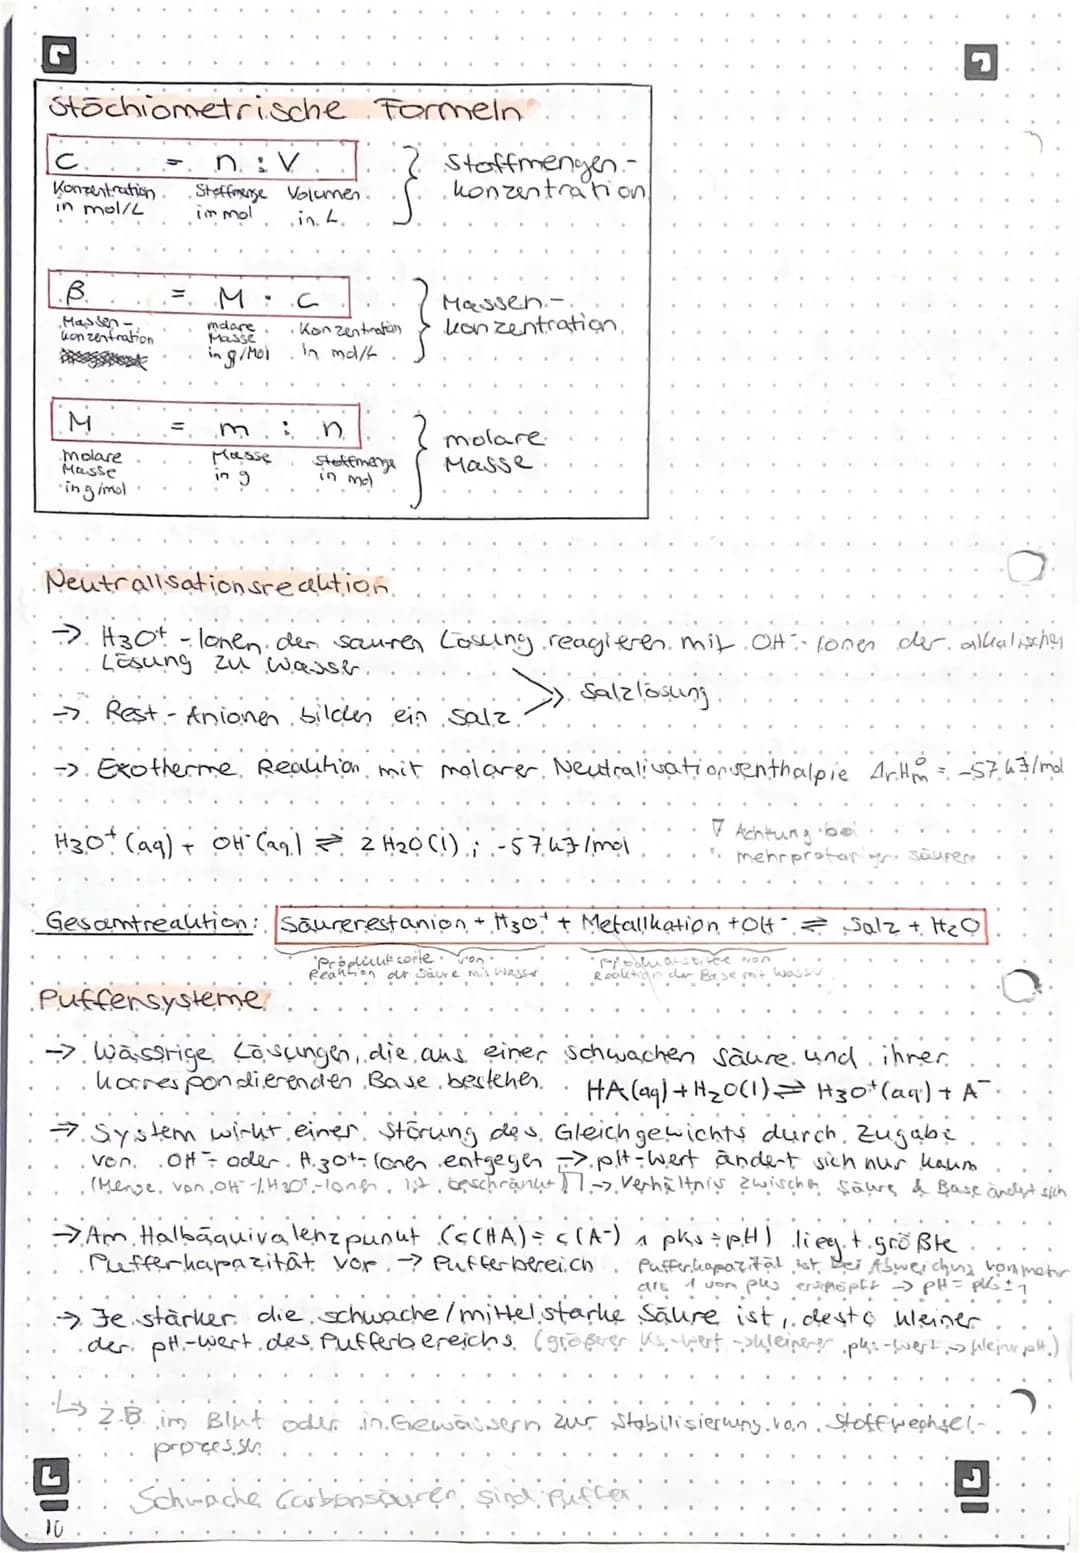 Stöchiometrische Formeln
c = n : V
Konzentration in mol/L
Stoffmenge in mol
Volumen in L
Stoffmengen-
konzentration
β = M · c
Massen-
konzentration
molare Masse in g/mol
Konzentration in mol/L
Massen-
konzentration
M = m : n
molare Masse in g/mol
Masse in g
Stoffmenge in mol
molare
Masse
Neutralisationsreaktion
→ H3O+ - Ionen der sauren Lösung reagieren mit OH- - Ionen der alkalischen
Lösung zu Wasser
Salzlösung
→ Rest-Anionen bilden ein Salz
→ Exotherme Reaktion mit molarer Neutralisationsenthalpie ΔrHm° = -57 kJ/mol
H3O+ (aq) + OH- (aq) ⇌ 2 H2O (l) ; -57 kJ/mol
Achtung bei
mehrprotonigen Säuren
Gesamtreaktion: Säurerestanion + H3O+ + Metallkation + OH- ⇌ Salz + H2O
Produktseite von
Reaktion der Säure mit Wasser
Produktseite von
Reaktion der Base mit Wasser
Puffersysteme
→ Wässrige Lösungen, die aus einer schwachen Säure und ihrer
korrespondierenden Base bestehen. HA (aq) + H2O (l) ⇌ H3O+ (aq) + A-
→ System wirkt einer Störung des Gleichgewichts durch Zugabe
von OH- - oder H3O+-Ionen entgegen → pH-Wert ändert sich nur kaum
(Menge von OH-/H3O+-Ionen ist beschränkt!) → Verhältnis zwischen Säure & Base ändert sich
→ Am Halbäquivalenzpunkt (c(HA) = c(A-) ∧ pks = pH) liegt größte
Pufferkapazität vor → Pufferbereich
Pufferkapazität ist bei Abweichung von mehr
als 1 von pks erschöpft → pH = pks ± 1
→ Je stärker die schwache/mittelstarke Säure ist, desto kleiner
der pH-Wert des Pufferbereichs (größerer Ks-Wert → kleinerer pks-Wert → kleiner pH)
↳ z.B. im Blut oder in Gewässern zur Stabilisierung von Stoffwechsel-
prozessen
Schwache Carbonsäuren sind Puffer
10